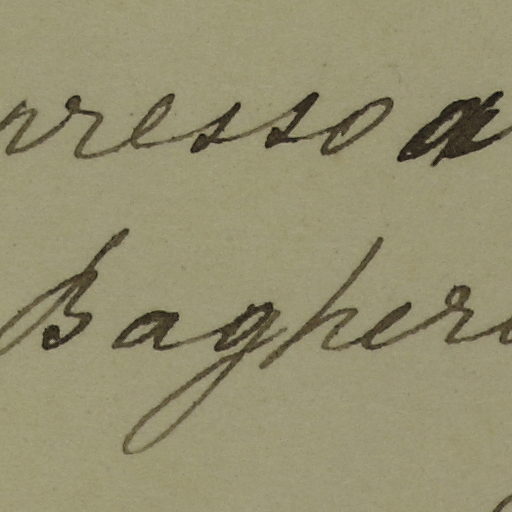 rresso a
Bagheri